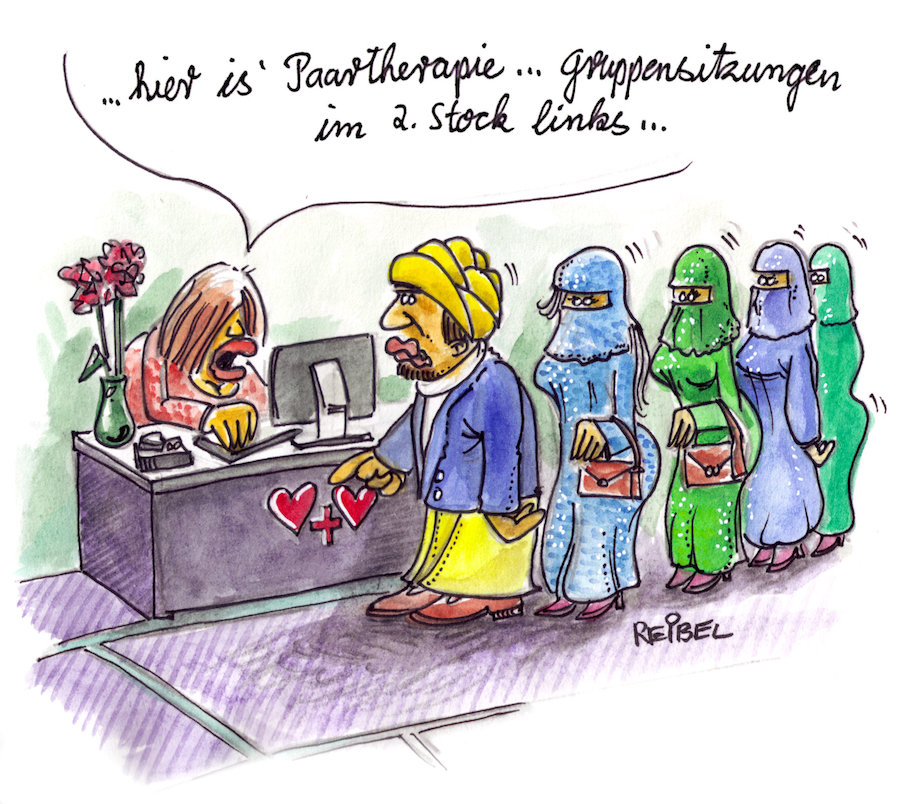 ...hier is' Paartherapie... Gruppensitzungen
im 2. Stock links...
REIBEL